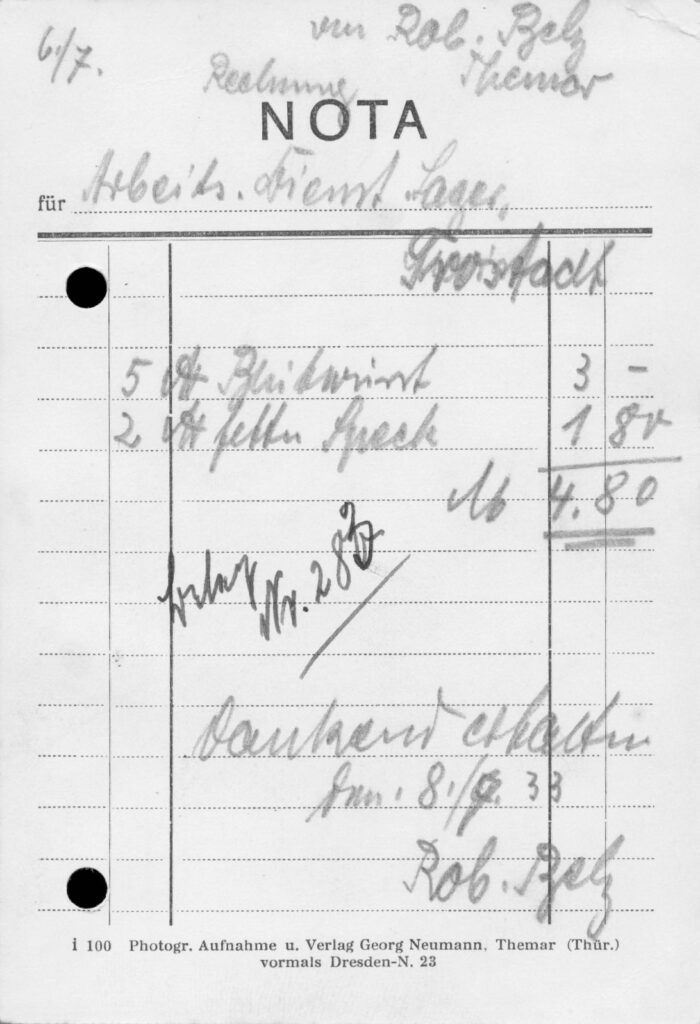 6./7.
von Rob. Belz
Rechnung Themar
NOTA
für Arbeits. Dienst Lager,
Trostadt
5 ℔ Blutwurst 3 –
2 ℔ fetten Speck 1 80
M 4.80
Beleg
Nr. 28
Dankend erhalten
den. 8./7. 33
Rob. Belz
i 100 Photogr. Aufnahme u. Verlag Georg Neumann, Themar (Thür.)
vormals Dresden-N. 23